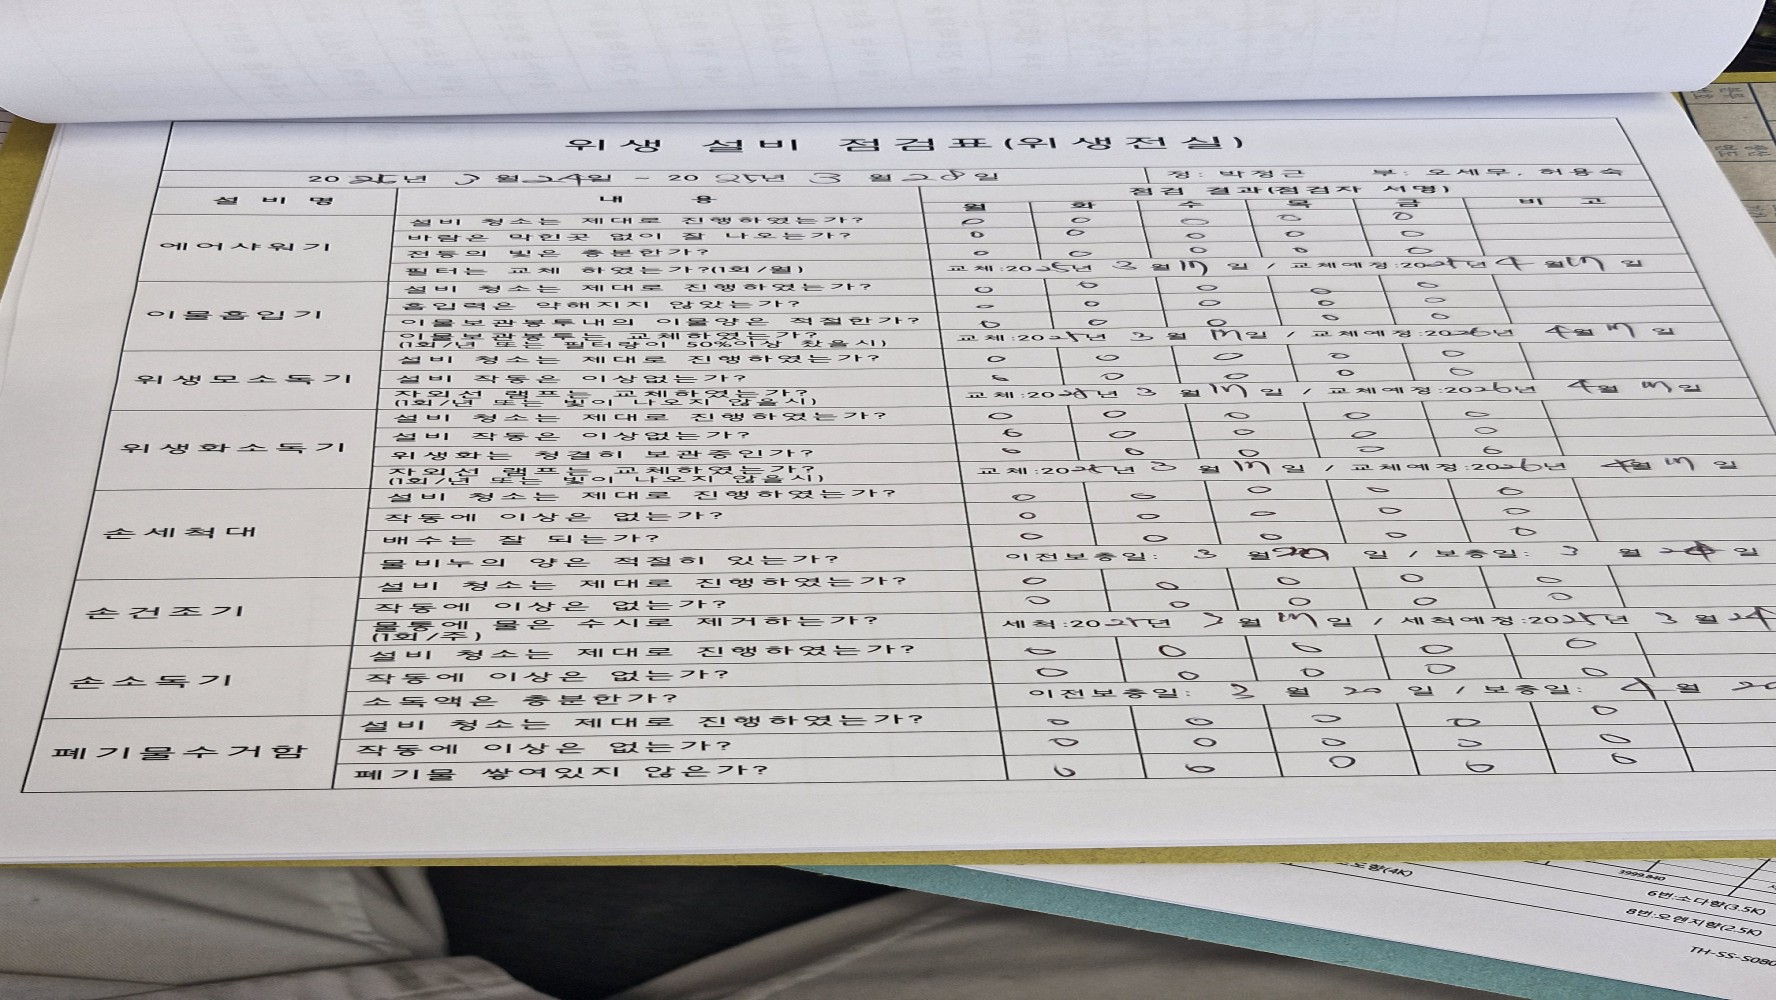 위생 설비 점검표(위생전실)
2025년 3월 24일 ~ 2025년 3월 28일 정: 박정근 부: 오세무, 허용숙
설비명 내용 점검 결과(점검자 서명)
월 화 수 목 금 비고
에어샤워기
설비 청소는 제대로 진행하였는가? O O O O O
바람은 막힌곳 없이 잘 나오는가? O O O O O
전등의 빛은 충분한가? O O O O O
필터는 교체 하였는가?(1회/월) 교체:2025년 3월 17일 / 교체예정:2025년 4월 17일
이물흡입기
설비 청소는 제대로 진행하였는가? O O O O O
흡입력은 약해지지 않았는가? O O O O O
이물보관봉투내의 이물양은 적절한가? O O O O O
이물보관봉투는 교체하였는가? 교체:2025년 3월 17일 / 교체예정:2026년 4월 17일
(1회/년 또는 필터량이 50%이상 찼을시)
위생모소독기
설비 청소는 제대로 진행하였는가? O O O O O
설비 작동은 이상없는가? O O O O O
자외선 램프는 교체하였는가? 교체:2025년 3월 17일 / 교체예정:2026년 4월 17일
(1회/년 또는 빛이 나오지 않을시)
위생화소독기
설비 청소는 제대로 진행하였는가? O O O O O
설비 작동은 이상없는가? O O O O O
위생화는 청결히 보관중인가? O O O O O
자외선 램프는 교체하였는가? 교체:2025년 3월 17일 / 교체예정:2026년 월 17일
(1회/년 또는 빛이 나오지 않을시)
손세척대
설비 청소는 제대로 진행하였는가? O O O O O
작동에 이상은 없는가? O O O O O
배수는 잘 되는가? O O O O O
물비누의 양은 적절히 있는가? 이전보충일: 3월 일 / 보충일: 3월 일
손건조기
설비 청소는 제대로 진행하였는가? O O O O O
작동에 이상은 없는가? O O O O O
물통에 물은 수시로 제거하는가? 세척:2025년 3월 17일 / 세척예정:2025년 3월 24
(1회/주)
손소독기
설비 청소는 제대로 진행하였는가? O O O O O
작동에 이상은 없는가? O O O O O
소독액은 충분한가? 이전보충일: 3월 20일 / 보충일: 4월 20
폐기물수거함
설비 청소는 제대로 진행하였는가? O O O O O
작동에 이상은 없는가? O O O O O
폐기물 쌓여있지 않은가? O O O O O
3999.840
6번:소다향(3.5K)
8번:오렌지향(2.5K)
TH-SS-S080